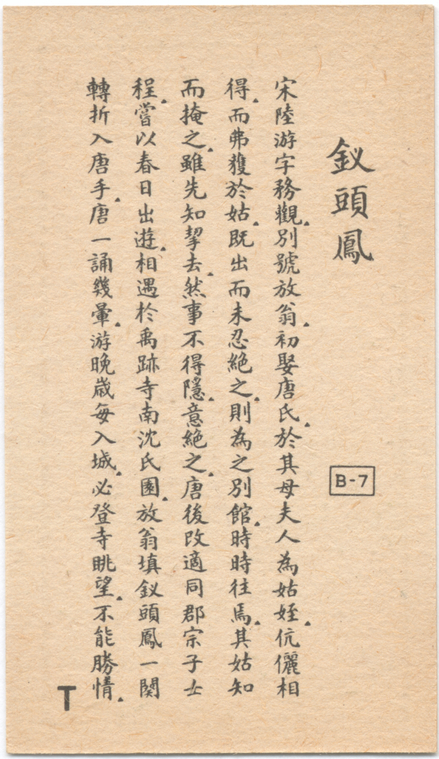 釵頭鳳
B-7
宋陸游字務觀.別號放翁.初娶唐氏.於其母夫人為姑姪.伉儷相
得.而弗獲於姑.既出而未忍絕之.則為之別館.時時往焉.其姑知
而掩之.雖先知挈去.然事不得隱.意絕之.唐後改適同郡宗子士
程.嘗以春日出遊.相遇於禹跡寺南沈氏園.放翁填釵頭鳳一闋
轉折入唐手.唐一誦幾暈.游晚歲每入城.必登寺眺望.不能勝情.
T